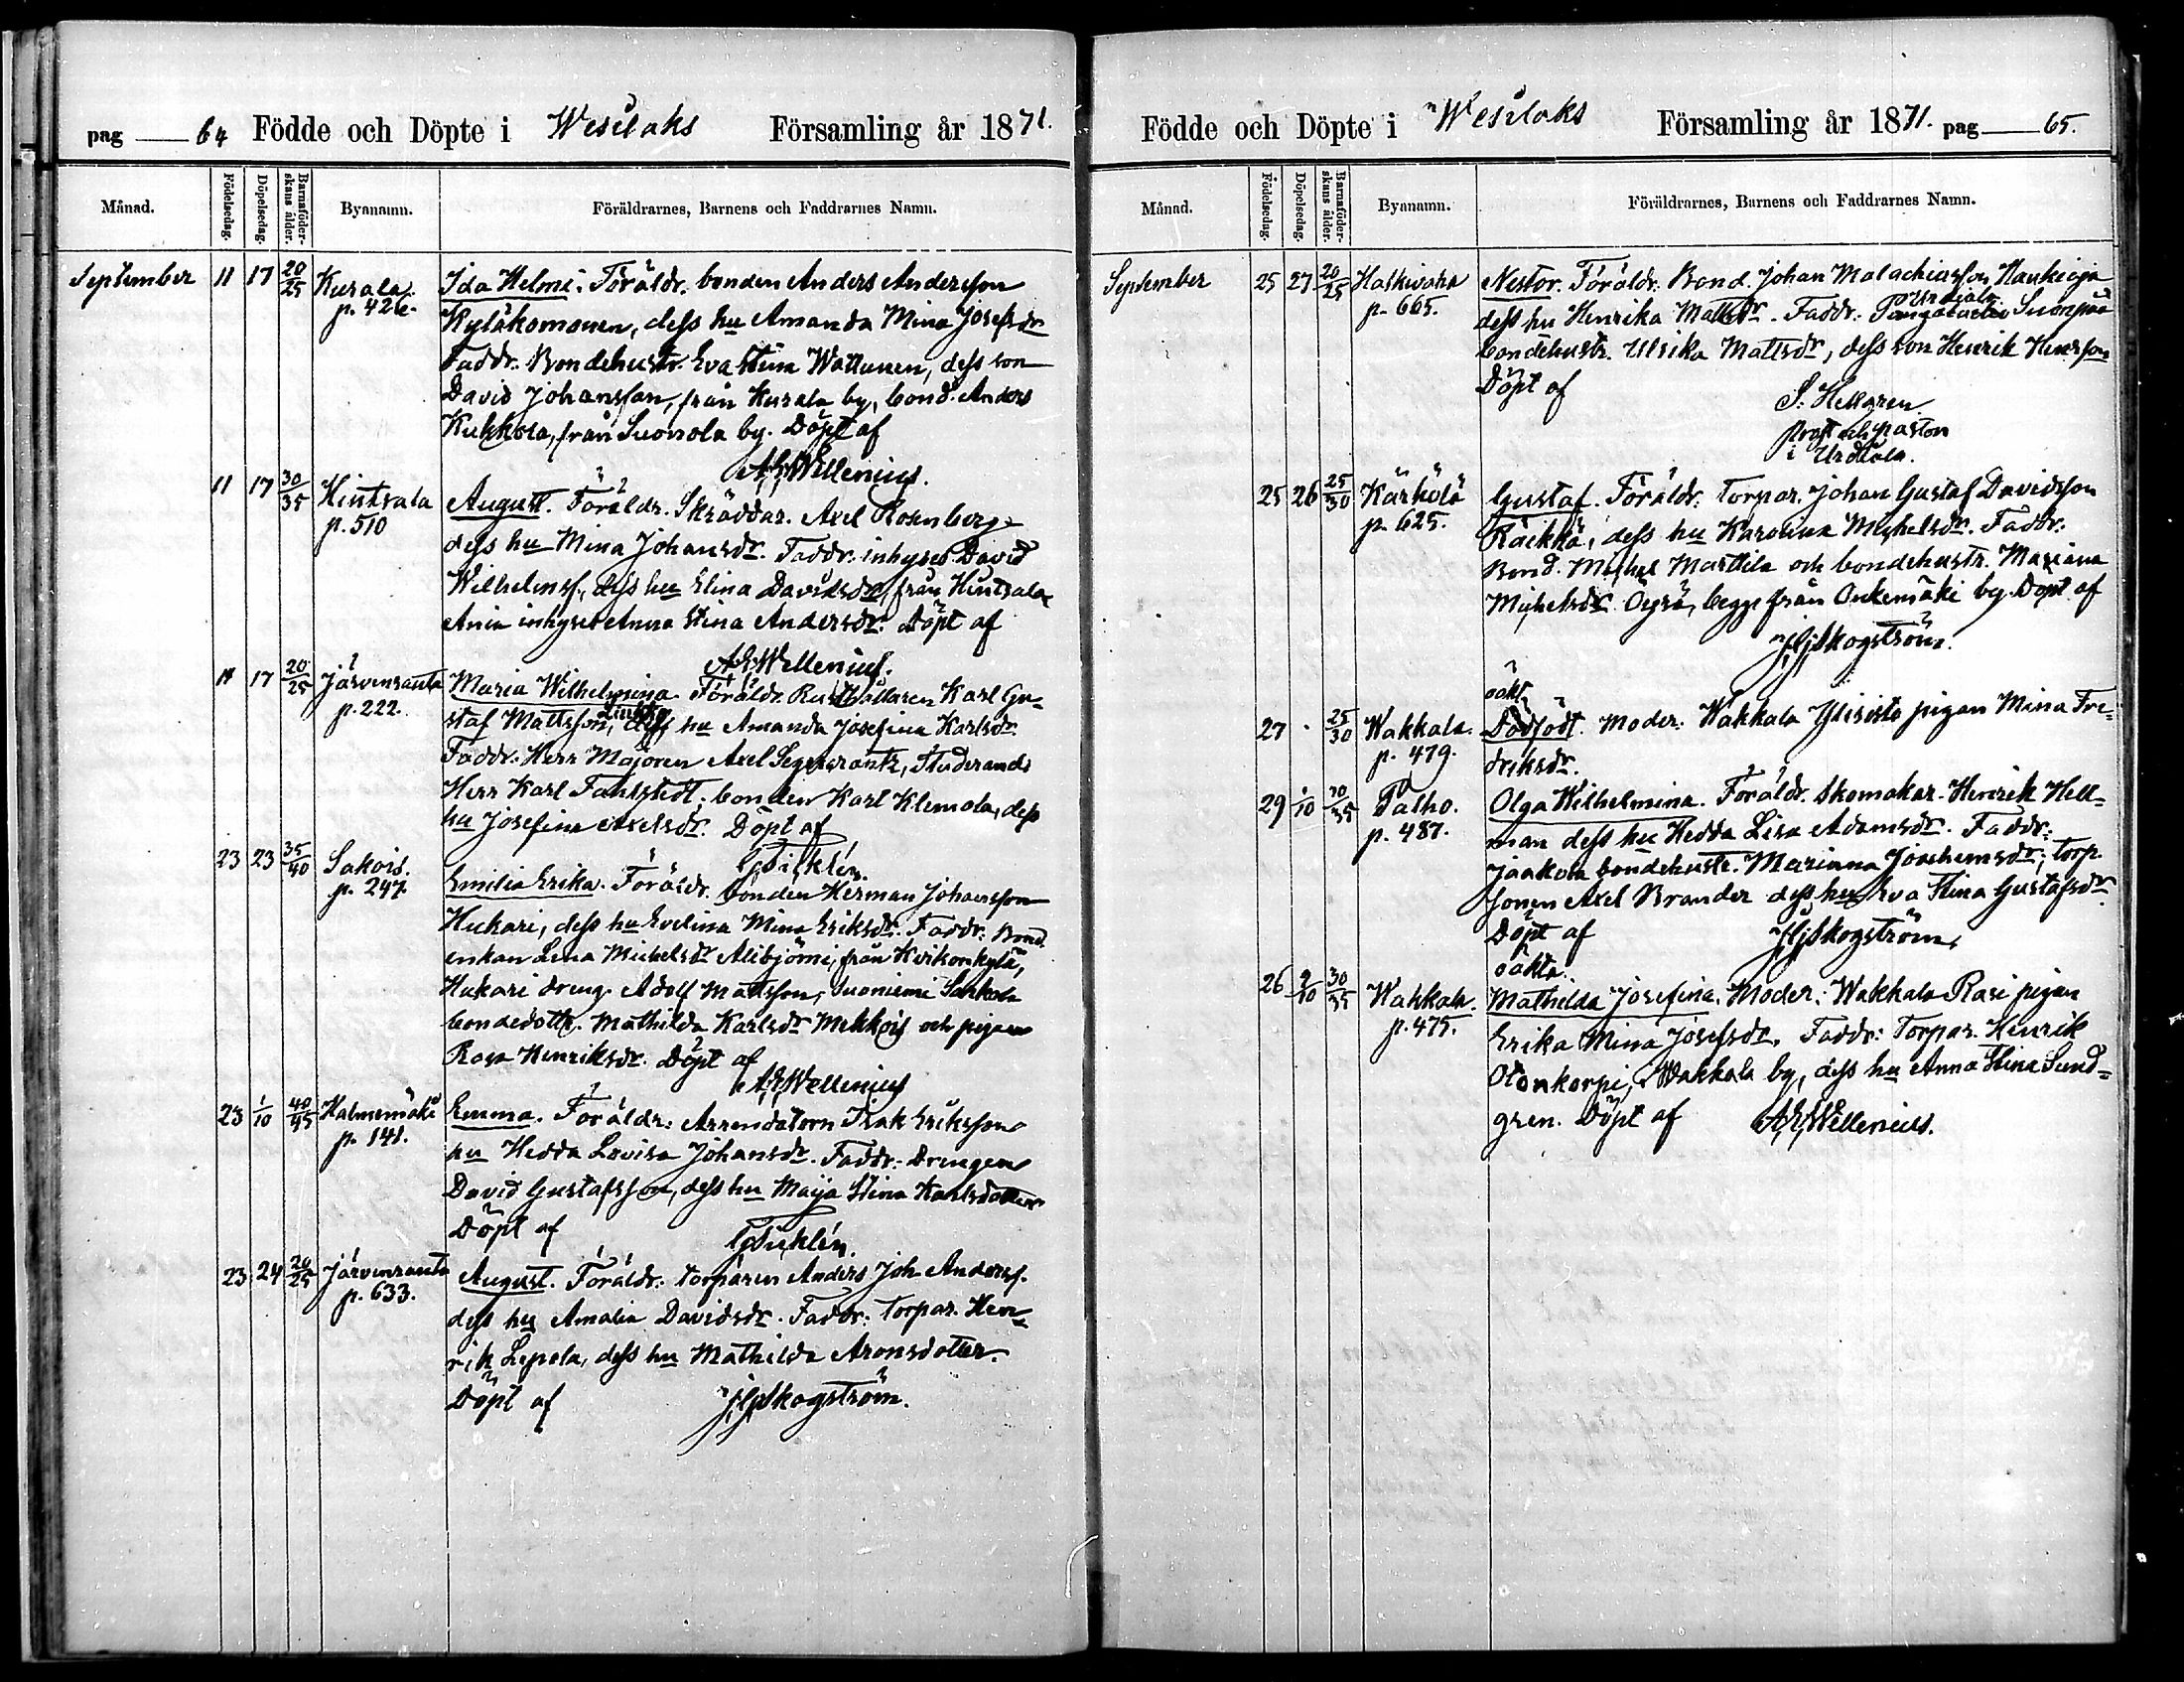 pag 64 Födde och Döpte i Wesilaks Församling år 1871.
Månad.
Födelsedag.
Döpelsedag.
Barnaföder-
skans ålder.
Bynamn.
Föräldrarnes, Barnens och Faddrarnes Namn.
September 11 17 20/25 Kurala Ida Helmi. Föräldr. bonden Anders Andersson
p. 426. Kyläkomonen, dess hu Amanda Mina Josefsdr
Faddr. Bondehustr. Eva Stina Wattunen, dess son
David Johansson, från Kurala by, bond. Anders
Kukkola, från Suonola by. Döpt af
A E Wellenius.
11 17 30/35 Hintsala August. Föräldr. Skräddar. Axel Rosenberg
p. 510 dess hu Mina Johansdr. Faddr. inhyses David
Wilhelmsf., dess hu Elina Davidsdr, från Hintsala
inhyses Anna Stina Andersdr. Döpt af
A E Wellenius.
17 20/25 Järvenranta Maria Wilhelmina. Föräldr. Rusthållaren Karl Gu-
p. 222. staf Mattsson, dess hu Amanda Josefina Karlsdr.
Faddr. Herr Majoren Axel Segercrantz, Studerande
Herr Karl Fahlstedt, bonden Karl Klemola, dess
hu Josefina Axelsdr. Döpt af
23 23 35/40 Sakois. Emilia Erika. Föräldr. bonden Herman Johansson
p. 247. Hukari, dess hu Evelina Mina Eriksdr. Faddr. Bond
enkan Lena Michelsdr Alibjörni, från Krikonkylä,
Hukari dreng Adolf Mattsson, Suoniemi
bondedottr. Mathilda Karlsdr Mekkois och pigan
Rosa Henriksdr. Döpt af
A E Wellenius
23 1/10 40/45 Halmemäki Emma. Föräldr: Arrendatorn Isak Eriksson
p. 141. hu Hedda Lovisa Johansdr. Faddr. Drengen
David Gustafsson, dess hu Maija Stina Karlsdotter
Döpt af
23 24 20/25 Järvenranta August. Föräldr: torparen Anders Joh. Andersf.
p. 633. dess hu Amalia Davidsdr. Faddr: Torpar. Hen-
rik Lepola, dess hu Mathilda Aronsdotter.
Döpt af Skogström.
Födde och Döpte i Wesilaks Församling år 1871. pag 65.
Månad.
Födelsedag.
Döpelsedag.
Barnaföder-
skans ålder.
Bynamn.
Föräldrarnes, Barnens och Faddrarnes Namn.
September 25 27 20/25 Halkivaha Nestor. Föräldr: Bond. Johan Malachiasson Haukioja
p. 665. dess hu Henrika Mattsdr. Faddr: Suonpää
bondehustr. Ulrika Mattsdr, dess son Henrik Henrsson
Döpt af S. Hellgren
Prost och pastor
i Urdiala.
25 26 25/30 Kärkölä Gustaf. Föräldr: Torpar. Johan Gustaf Davidsson
p. 625. Räikkä, dess hu Karolina Michelsdr. Faddr:
Bond. Michel Marttila och bondehustr. Mariana
Michelsdr begge från Onkemäki by. Döpt af
Skogström.
oäkt.
27 25/30 Wakkala. Dödfödt. Moder: Wakkala Ylisisto pigan Mina Fre-
p. 479. driksdr.
29 1/10 30/35 Palho. Olga Wilhelmina. Föräldr. Skomakar. Henrik Hell-
p. 487. man dess hu Hedda Lisa Adamsdr. Faddr:
Jaakola bondehustr. Mariana Joachemsdr; torp.
sonen Axel Brander dess hu Eva Stina Gustafsdr.
Döpt af Skogström.
oäkta.
26 9/10 30/35 Wakkala Mathilda Josefina. Moder: Wakkala Rasi pigan
p. 475. Erika Mina Josefsdr. Faddr: Torpar. Henrik
Otonkorpi, Wakkala by, dess hu Anna Stina Sund-
gren. Döpt af A E Wellenius.